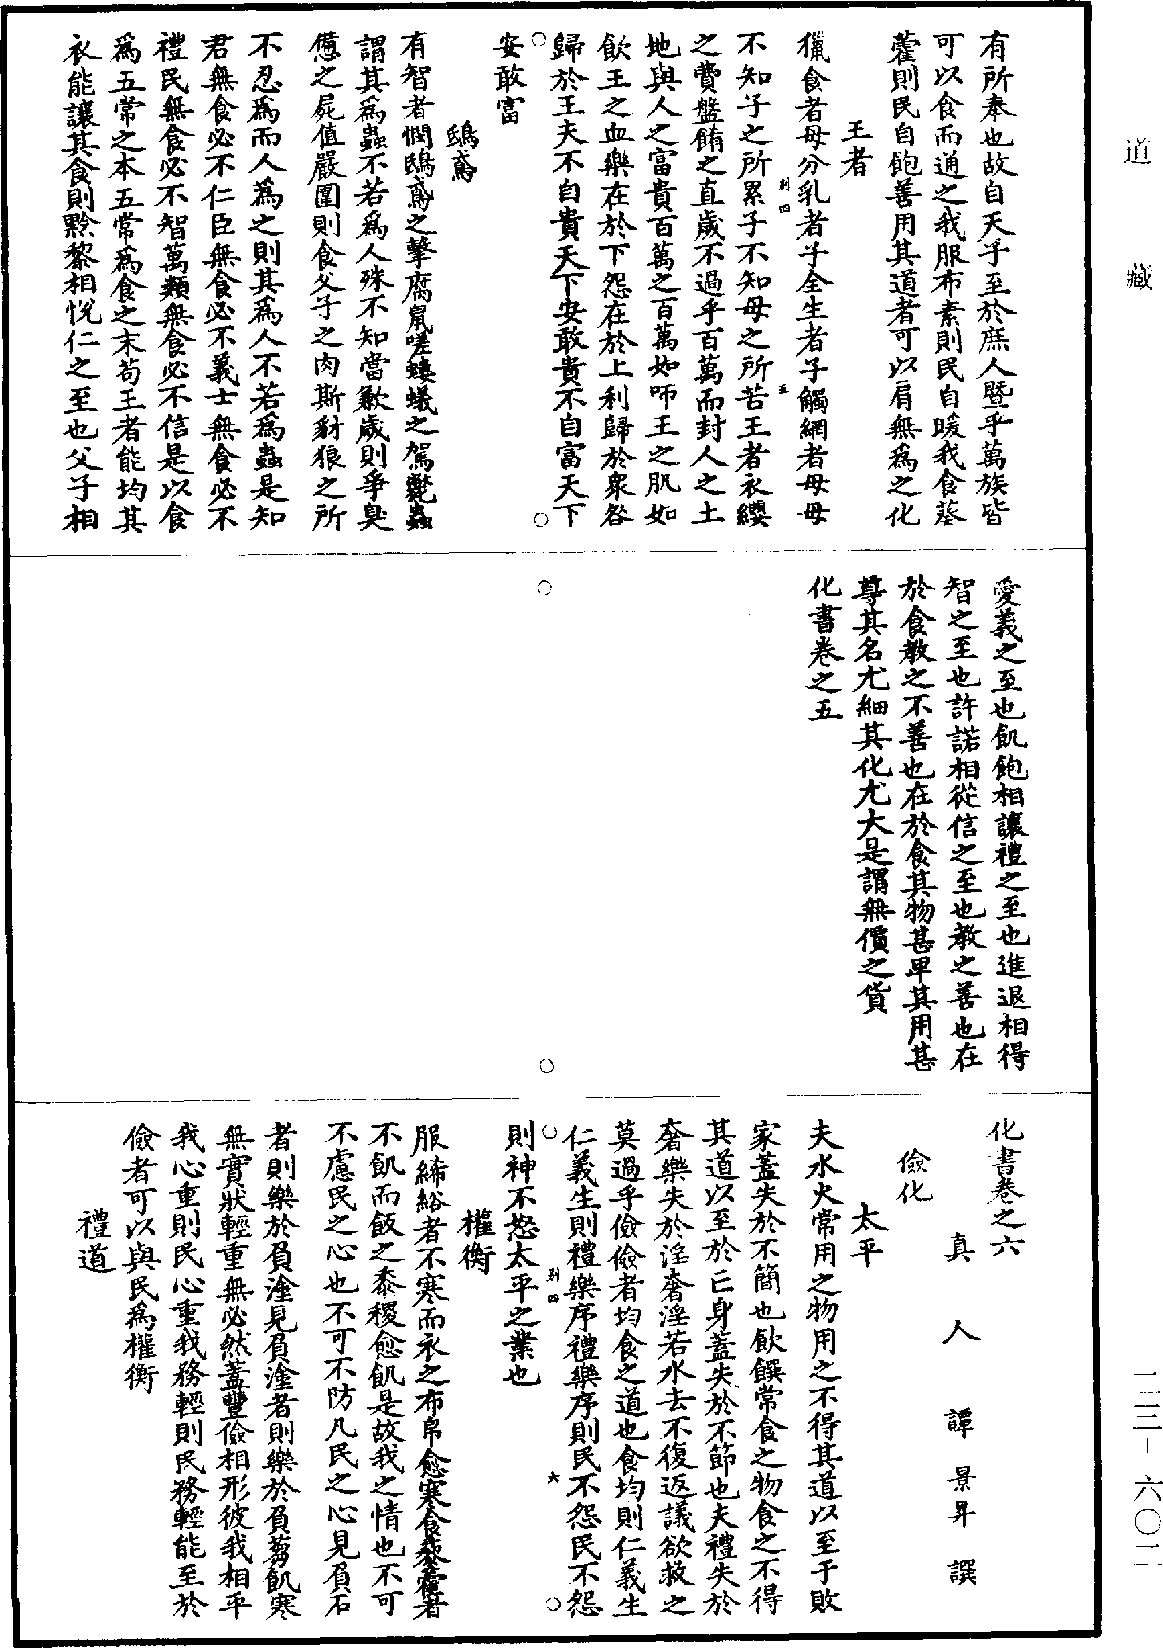 道藏
有所奉也故自天子至於庶人暨乎萬族皆
可以食而通之我服布素則民自暖我食葵
藿則民自飽善用其道者可以肩無為之化
王者
獵食者母分乳者子全生者子觸網者母母
不知子之所累子不知母之所苦王者衣纓
之費盤餚之直歲不過乎百萬而封人之土
地與人之富貴百萬之百萬如咂王之肌如
飲王之血樂在於下怨在於上利歸於眾咎
歸於王夫不自貴天下安敢貴不自富天下
安敢富
鴟鳶
有智者憫鴟鳶之擊腐鼠嗟螻蟻之駕斃蟲
謂其為蟲不若為人殊不知當歉歲則爭臭
憊之屍值嚴圍則食父子之肉斯豺狼之所
不忍為而人為之則其為人不若為蟲是知
君無食必不仁臣無食必不義士無食必不
禮民無食必不智萬類無食必不信是以食
為五常之本五常為食之末苟王者能均其
衣能讓其食則黔黎相悅仁之至也父子相
愛義之至也飢飽相讓禮之至也進退相得
智之至也許諾相從信之至也教之善也在
於食教之不善也在於食其物甚卑其用甚
尊其名尤細其化尤大是謂無價之貨
化書卷之五
化書卷之六
真人譚景昇譔
儉化
太平
夫水火常用之物用之不得其道以至于敗
家蓋失於不簡也飲饌常食之物食之不得
其道以至於亡身蓋失於不節也夫禮失於
奢樂失於淫奢淫若水去不復返議欲救之
莫過乎儉儉者均食之道也食均則仁義生
仁義生則禮樂序禮樂序則民不怨民不怨
則神不怒太平之業也
權衡
服絺綌者不寒而衣之布帛愈寒食藜藿者
不飢而飯之黍稷愈飢是故我之情也不可
不慮民之心也不可不防凡民之心見負石
者則樂於負塗見負塗者則樂於負芻飢寒
無實狀輕重無必然蓋豐儉相形彼我相平
我心重則民心重我務輕則民務輕能至於
儉者可以與民為權衡
禮道
二三－六〇二